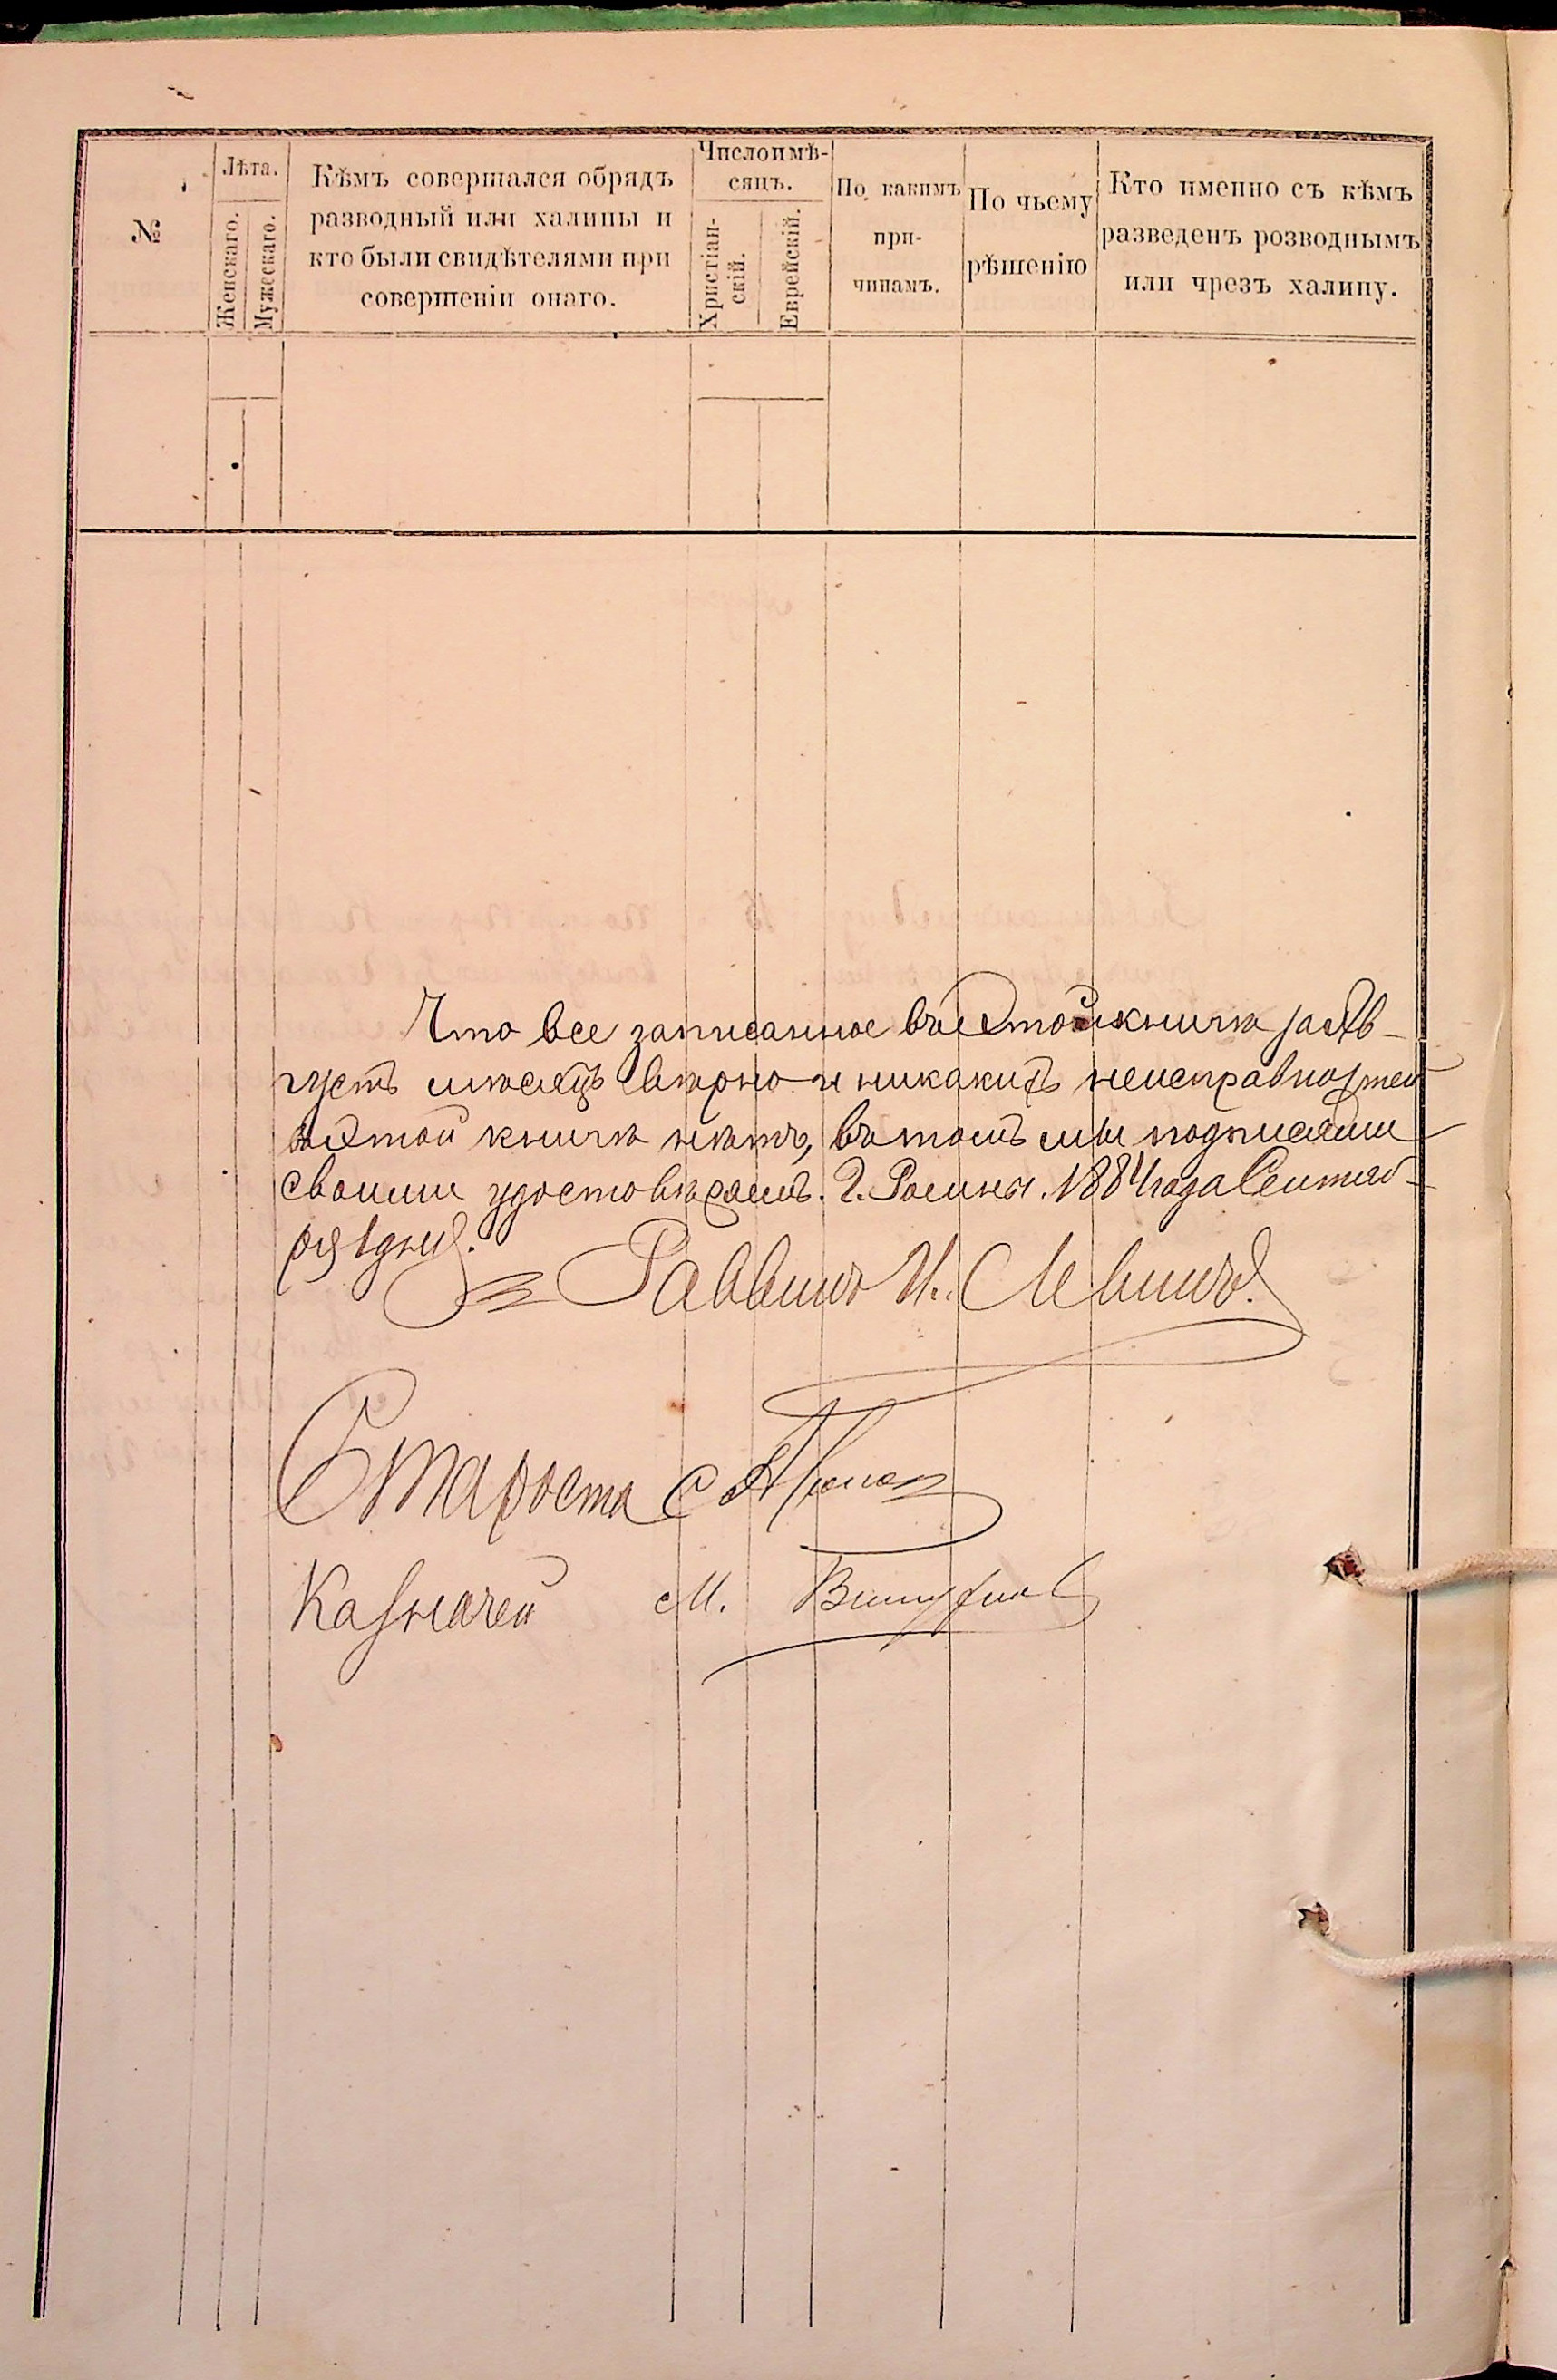 №
Лѣта.
Женскаго.
Мужескаго.
Кѣмъ совершался обрядъ
разводный или халицы и
кто были свидѣтелями при
совершеніи онаго.
Числоимѣ-
сяцъ.
Христіан-
скій.
Еврейскій.
По какимъ
при-
чинамъ.
По чьему
рѣшенію
Кто именно съ кѣмъ
разведенъ розводнымъ
или чрезъ халицу.
Что все записанное въ этой книгѣ за Ав-
густъ мѣсяцъ вѣрно и никакихъ неисправностей
въ этой книгѣ нѣтъ, въ томъ мы подписями
своими удостовѣряемъ. Г. Ромны. 1884 года Сентяб-
ря 1 дня.
Раввинъ И. Левинъ.
Староста С
Казначей М.